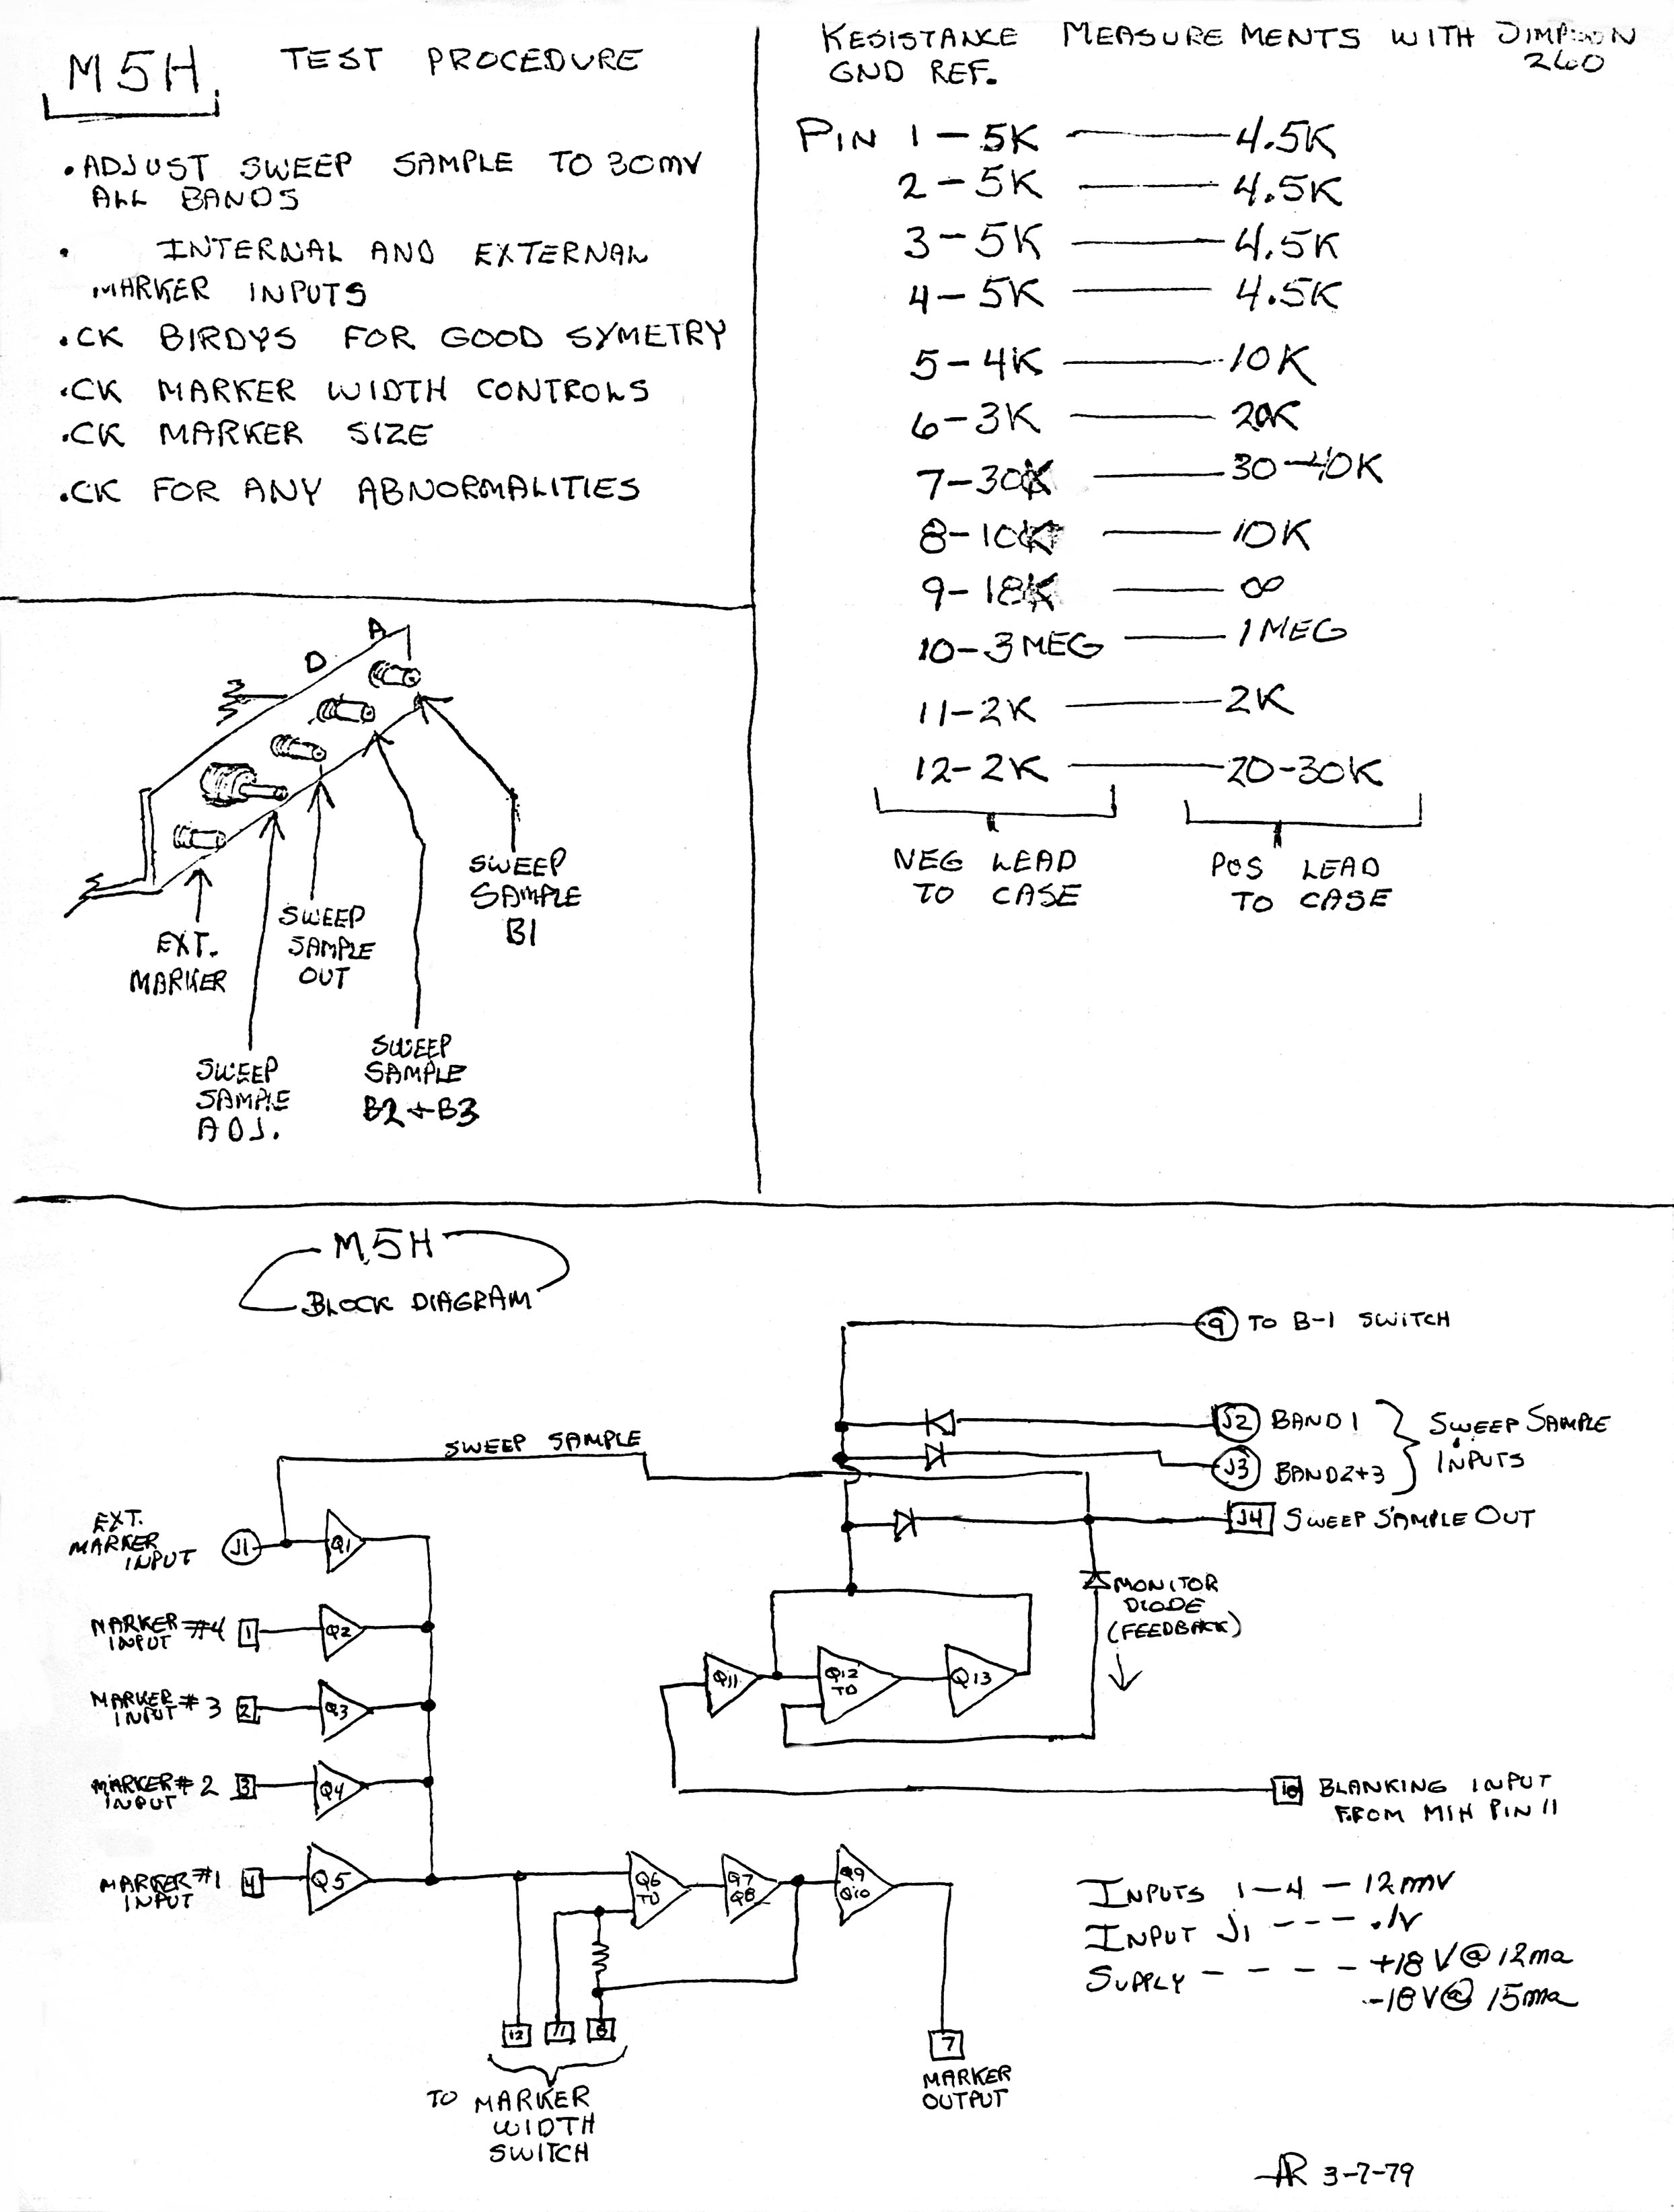 M5H TEST PROCEDURE
• ADJUST SWEEP SAMPLE TO 30MV
ALL BANDS
• INTERNAL AND EXTERNAL
MARKER INPUTS
• CK BIRDYS FOR GOOD SYMETRY
• CK MARKER WIDTH CONTROLS
• CK MARKER SIZE
• CK FOR ANY ABNORMALITIES
RESISTANCE MEASUREMENTS WITH SIMPSON
260
GND REF.
PIN 1 – 5K — 4.5K
2 – 5K — 4.5K
3 – 5K — 4.5K
4 – 5K — 4.5K
5 – 4K — 10K
6 – 3K — 20K
7 – 30K — 30–40K
8 – 10K — 10K
9 – 18K — ∞
10 – 3MEG — 1MEG
11 – 2K — 2K
12 – 2K — 20-30K
NEG LEAD
TO CASE
POS LEAD
TO CASE
A
D
SWEEP
SAMPLE
B1
SWEEP
SAMPLE
OUT
EXT.
MARKER
SWEEP
SAMPLE
B2+B3
SWEEP
SAMPLE
ADJ.
M5H
BLOCK DIAGRAM
9 TO B-1 SWITCH
J2 BAND 1
J3 BAND 2+3
SWEEP SAMPLE
INPUTS
SWEEP SAMPLE
J4 SWEEP SAMPLE OUT
EXT.
MARKER
INPUT
J1
Q1
MONITOR
DIODE
(FEEDBACK)
MARKER #4
INPUT
1
Q2
MARKER #3
INPUT
2
Q3
Q11
Q12
TO
Q13
MARKER #2
INPUT
3
Q4
10 BLANKING INPUT
FROM M1H PIN 11
MARKER #1
INPUT
4
Q5
Q6
TO
Q7
Q8
Q9
Q10
INPUTS 1–4 – 12mV
INPUT J1 --- .1V
SUPPLY ---- +18V@12ma
-18V@15ma
12 11 8
TO MARKER
WIDTH
SWITCH
7
MARKER
OUTPUT
AR 3-7-79